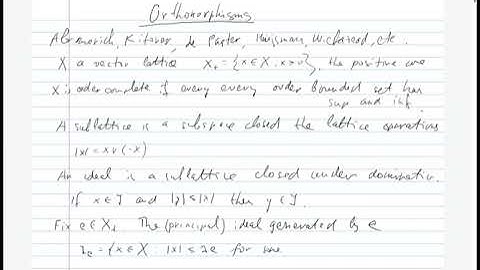 Orthomorphisms
Abramovich, Kitover, de Pagter, Huijsmans, Wickstead, etc.
X a vector lattice X₊ = {x ∈ X : x ≥ 0}, the positive cone
X is order complete if every every order bounded set has
sup and inf.
A sublattice is a subspace closed the lattice operations
|x| = x ∨ (-x)
An ideal is a sublattice closed under domination.
If x ∈ J and |y| ≤ |x| then y ∈ J.
Fix e ∈ X₊ The (principal) ideal generated by e
Iₑ = {x ∈ X : |x| ≤ λe for